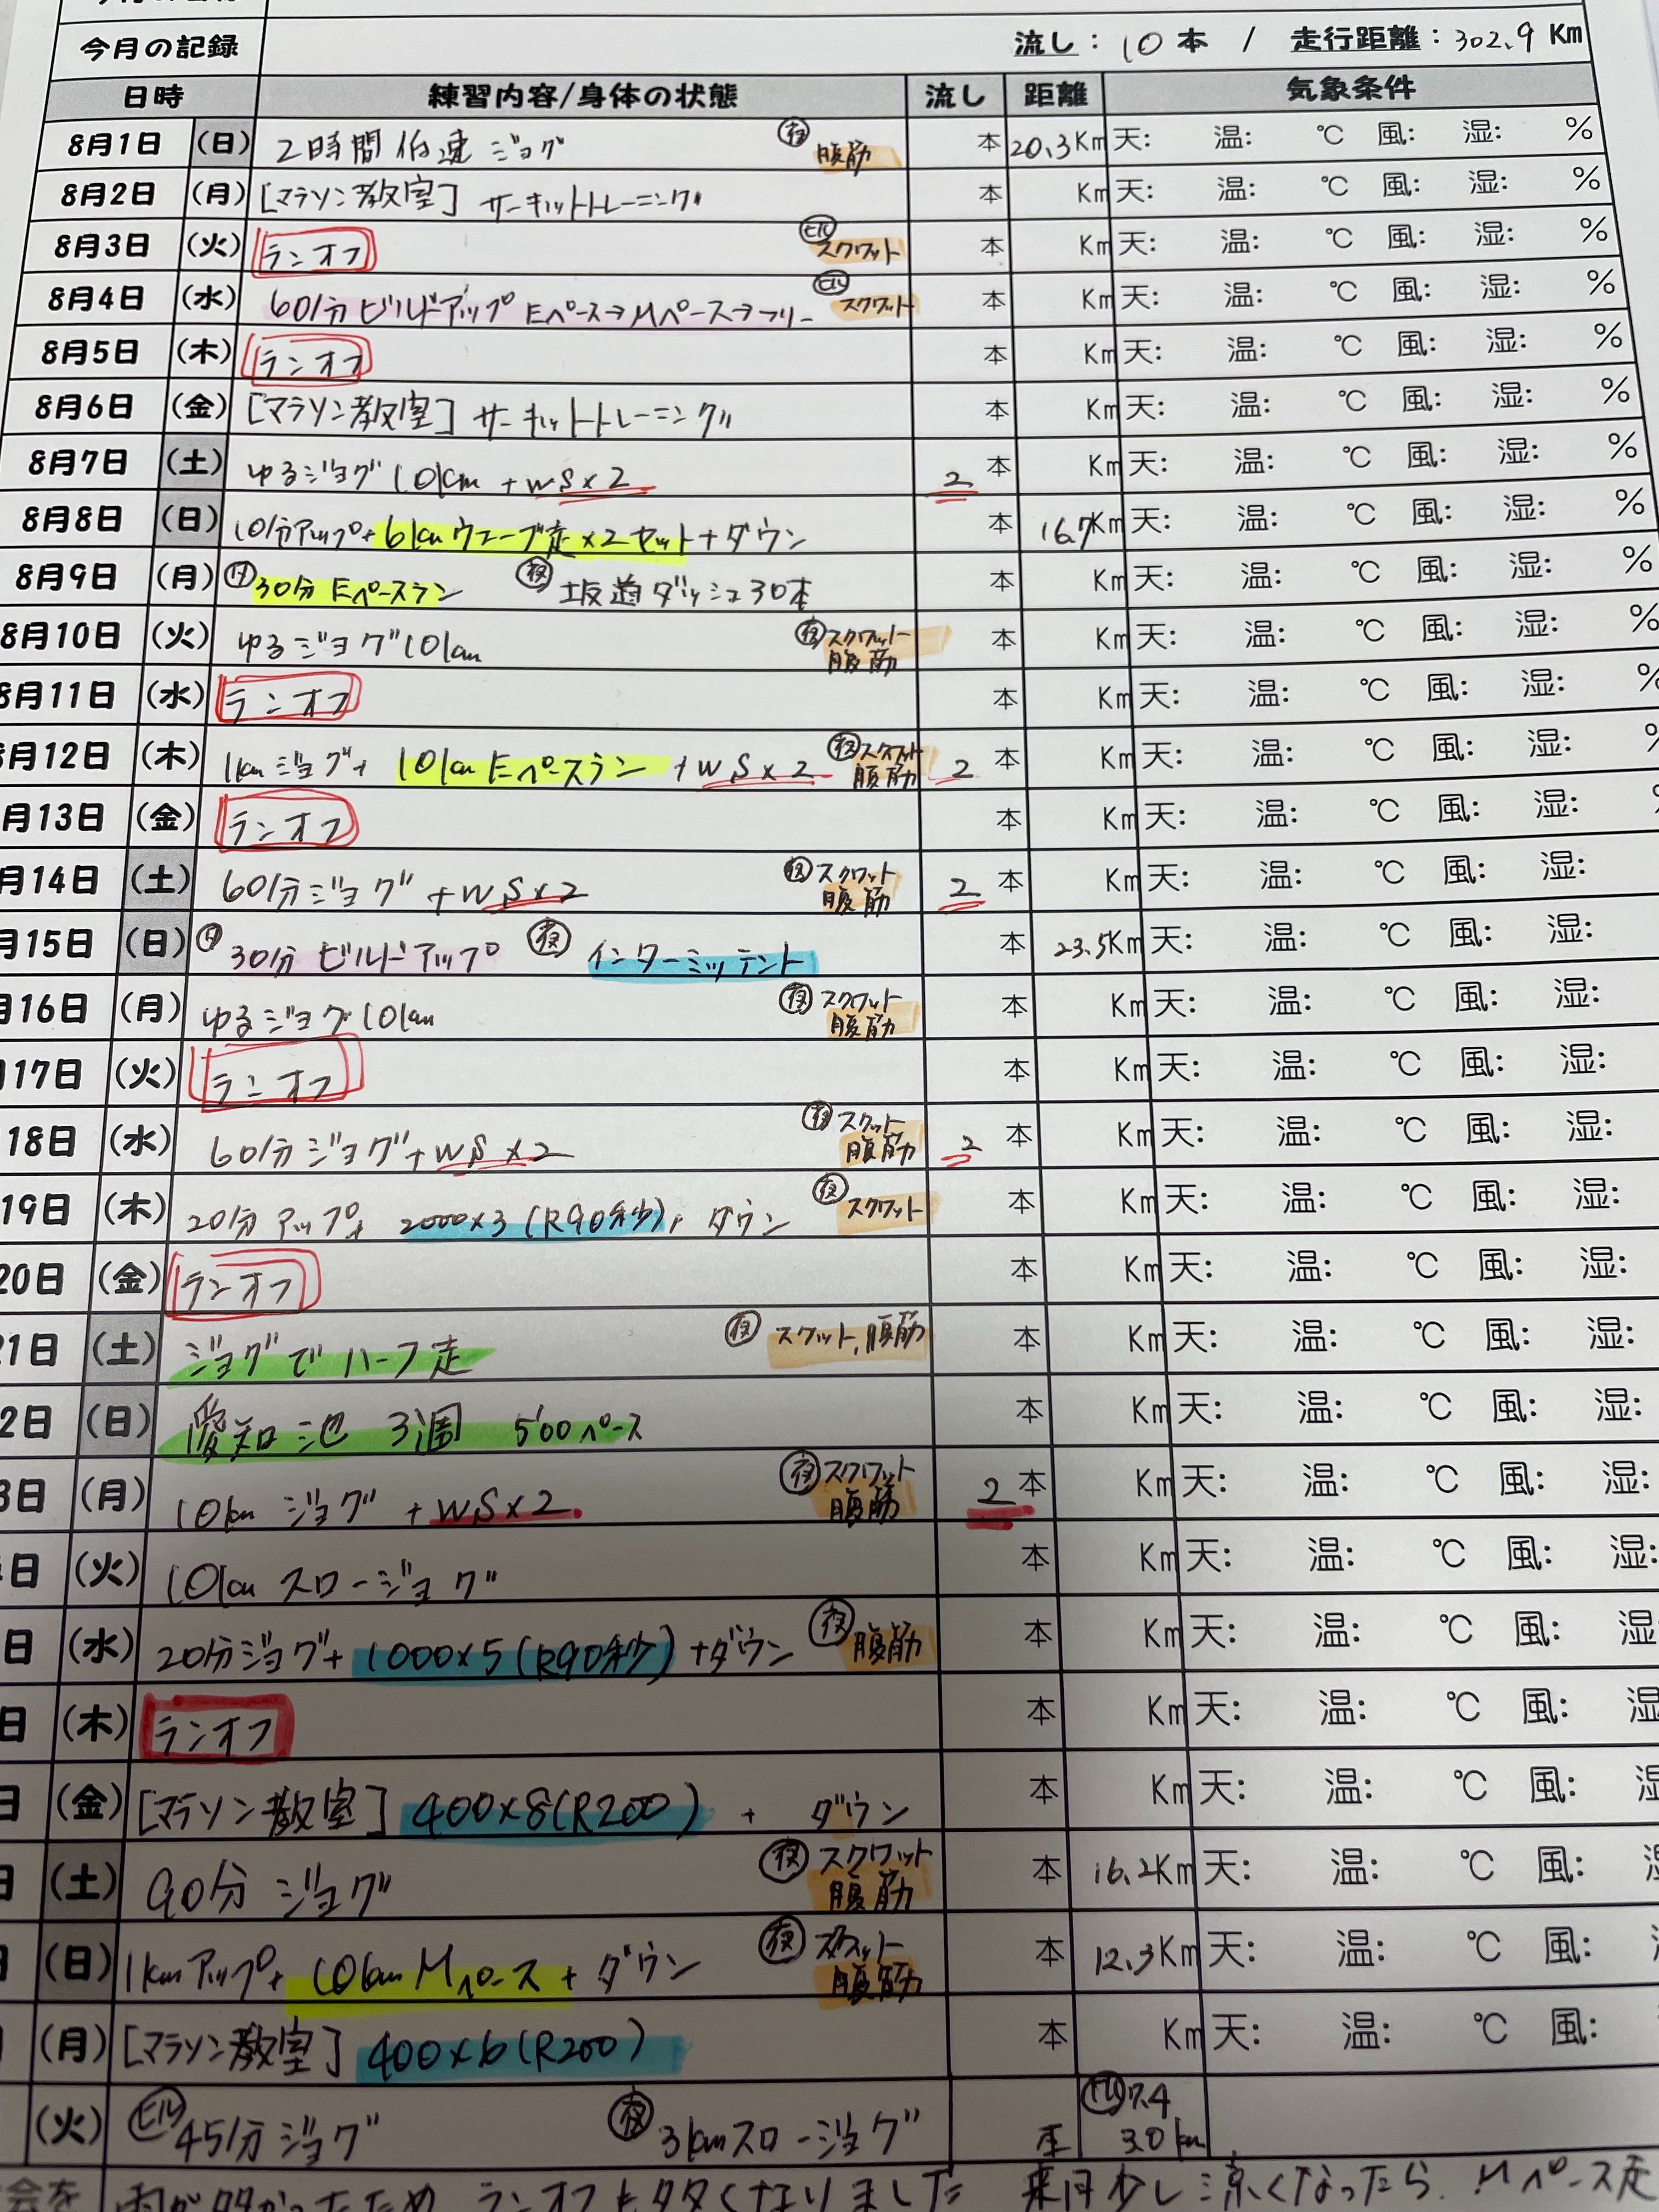 今月の記録 流し: 10本 / 走行距離: 302.9 Km
日時 練習内容/身体の状態 流し 距離 気象条件
8月1日 (日) 2時間 低速 ジョグ 夜 腹筋 本 20.3Km 天: 温: ℃ 風: 湿: %
8月2日 (月) [マラソン教室] サーキットトレーニング 本 Km 天: 温: ℃ 風: 湿: %
8月3日 (火) ランオフ ヒル スクワット 本 Km 天: 温: ℃ 風: 湿: %
8月4日 (水) 60分 ビルドアップ Eペース→Mペース→フリー ヒル スクワット 本 Km 天: 温: ℃ 風: 湿: %
8月5日 (木) ランオフ 本 Km 天: 温: ℃ 風: 湿: %
8月6日 (金) [マラソン教室] サーキットトレーニング 本 Km 天: 温: ℃ 風: 湿: %
8月7日 (土) ゆるジョグ 10km + WS×2 2 本 Km 天: 温: ℃ 風: 湿: %
8月8日 (日) 10分アップ+6kmウェーブ走×2セット+ダウン 本 16.7Km 天: 温: ℃ 風: 湿: %
8月9日 (月) 30分 Eペースラン 夜 坂道ダッシュ30本 本 Km 天: 温: ℃ 風: 湿: %
8月10日 (火) ゆるジョグ10km 夜 スクワット 腹筋 本 Km 天: 温: ℃ 風: 湿: %
8月11日 (水) ランオフ 本 Km 天: 温: ℃ 風: 湿: %
月12日 (木) 1kmジョグ+ 10km Eペースラン +WS×2 夜 スクワット 腹筋 2 本 Km 天: 温: ℃ 風: 湿: %
月13日 (金) ランオフ 本 Km 天: 温: ℃ 風: 湿:
月14日 (土) 60分ジョグ +WS×2 夜 スクワット 腹筋 2 本 Km 天: 温: ℃ 風: 湿:
月15日 (日) 30分 ビルドアップ 夜 インターミッテント 本 23.5Km 天: 温: ℃ 風: 湿:
月16日 (月) ゆるジョグ10km 夜 スクワット 腹筋 本 Km 天: 温: ℃ 風: 湿:
17日 (火) ランオフ 本 Km 天: 温: ℃ 風: 湿:
18日 (水) 60分ジョグ+WS×2 夜 スクワット 腹筋 2 本 Km 天: 温: ℃ 風: 湿:
19日 (木) 20分 アップ+ 2000×3 (R90秒)+ ダウン 夜 スクワット 本 Km 天: 温: ℃ 風: 湿:
20日 (金) ランオフ 本 Km 天: 温: ℃ 風: 湿:
1日 (土) ジョグでハーフ走 夜 スクワット, 腹筋 本 Km 天: 温: ℃ 風: 湿:
2日 (日) 愛知池 3週 5'00ペース 本 Km 天: 温: ℃ 風: 湿:
3日 (月) 10km ジョグ +WS×2 夜 スクワット 腹筋 2 本 Km 天: 温: ℃ 風: 湿:
日 (火) 10km スロージョグ 本 Km 天: 温: ℃ 風: 湿:
日 (水) 20分ジョグ+ 1000×5 (R90秒) +ダウン 夜 腹筋 本 Km 天: 温: ℃ 風: 湿
日 (木) ランオフ 本 Km 天: 温: ℃ 風: 湿
日 (金) [マラソン教室] 400×8(R200) + ダウン 本 Km 天: 温: ℃ 風:
日 (土) 90分 ジョグ 夜 スクワット 腹筋 本 16.2Km 天: 温: ℃ 風:
(日) 1kmアップ+ 10km Mペース + ダウン 夜 スクワット 腹筋 本 12.3Km 天: 温: ℃ 風:
(月) [マラソン教室] 400×6(R200) 本 Km 天: 温: ℃ 風:
(火) ヒル 45分ジョグ 夜 3kmスロージョグ 本 ヒル 7.4 3.0km
会を 雨が多かったため、ランオフも多くなりました 来月少し涼しくなったら、Mペース走